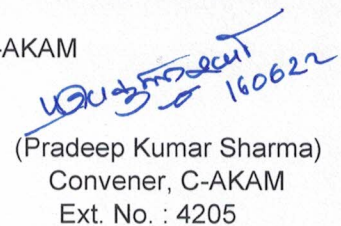 -AKAM
160622
(Pradeep Kumar Sharma)
Convener, C-AKAM
Ext. No. : 4205